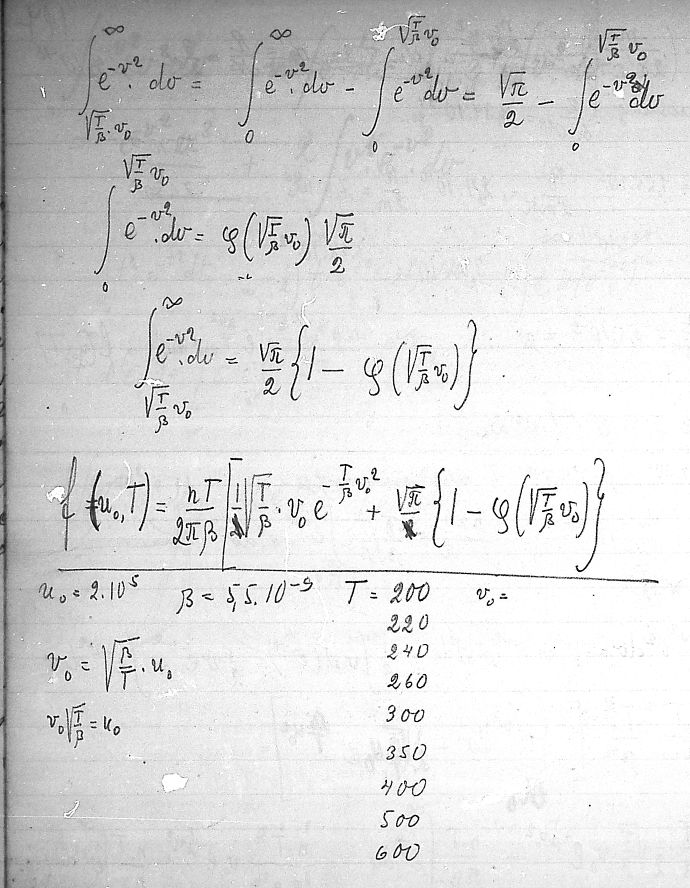 ∫_{√(T/β)·v₀}^{∞} e^{-v²}·dv = ∫_{0}^{∞} e^{-v²}·dv - ∫_{0}^{√(T/β) v₀} e^{-v²}dv = √π/2 - ∫_{0}^{√(T/β) v₀} e^{-v²}dv
∫_{0}^{√(T/β) v₀} e^{-v²}·dv = φ(√(T/β) v₀) √π/2
∫_{√(T/β) v₀}^{∞} e^{-v²}·dv = √π/2 {1 - φ(√(T/β) v₀)}
f(u₀,T) = nT/2πβ [√(T/β)·v₀ e^{-T/β v₀²} + √π {1 - φ(√(T/β) v₀)}
u₀ = 2.10⁵ β = 5,5.10⁻⁹ T = 200 v₀ =
220
v₀ = √(β/T)·u₀ 240
260
v₀√(T/β) = u₀ 300
350
400
500
600